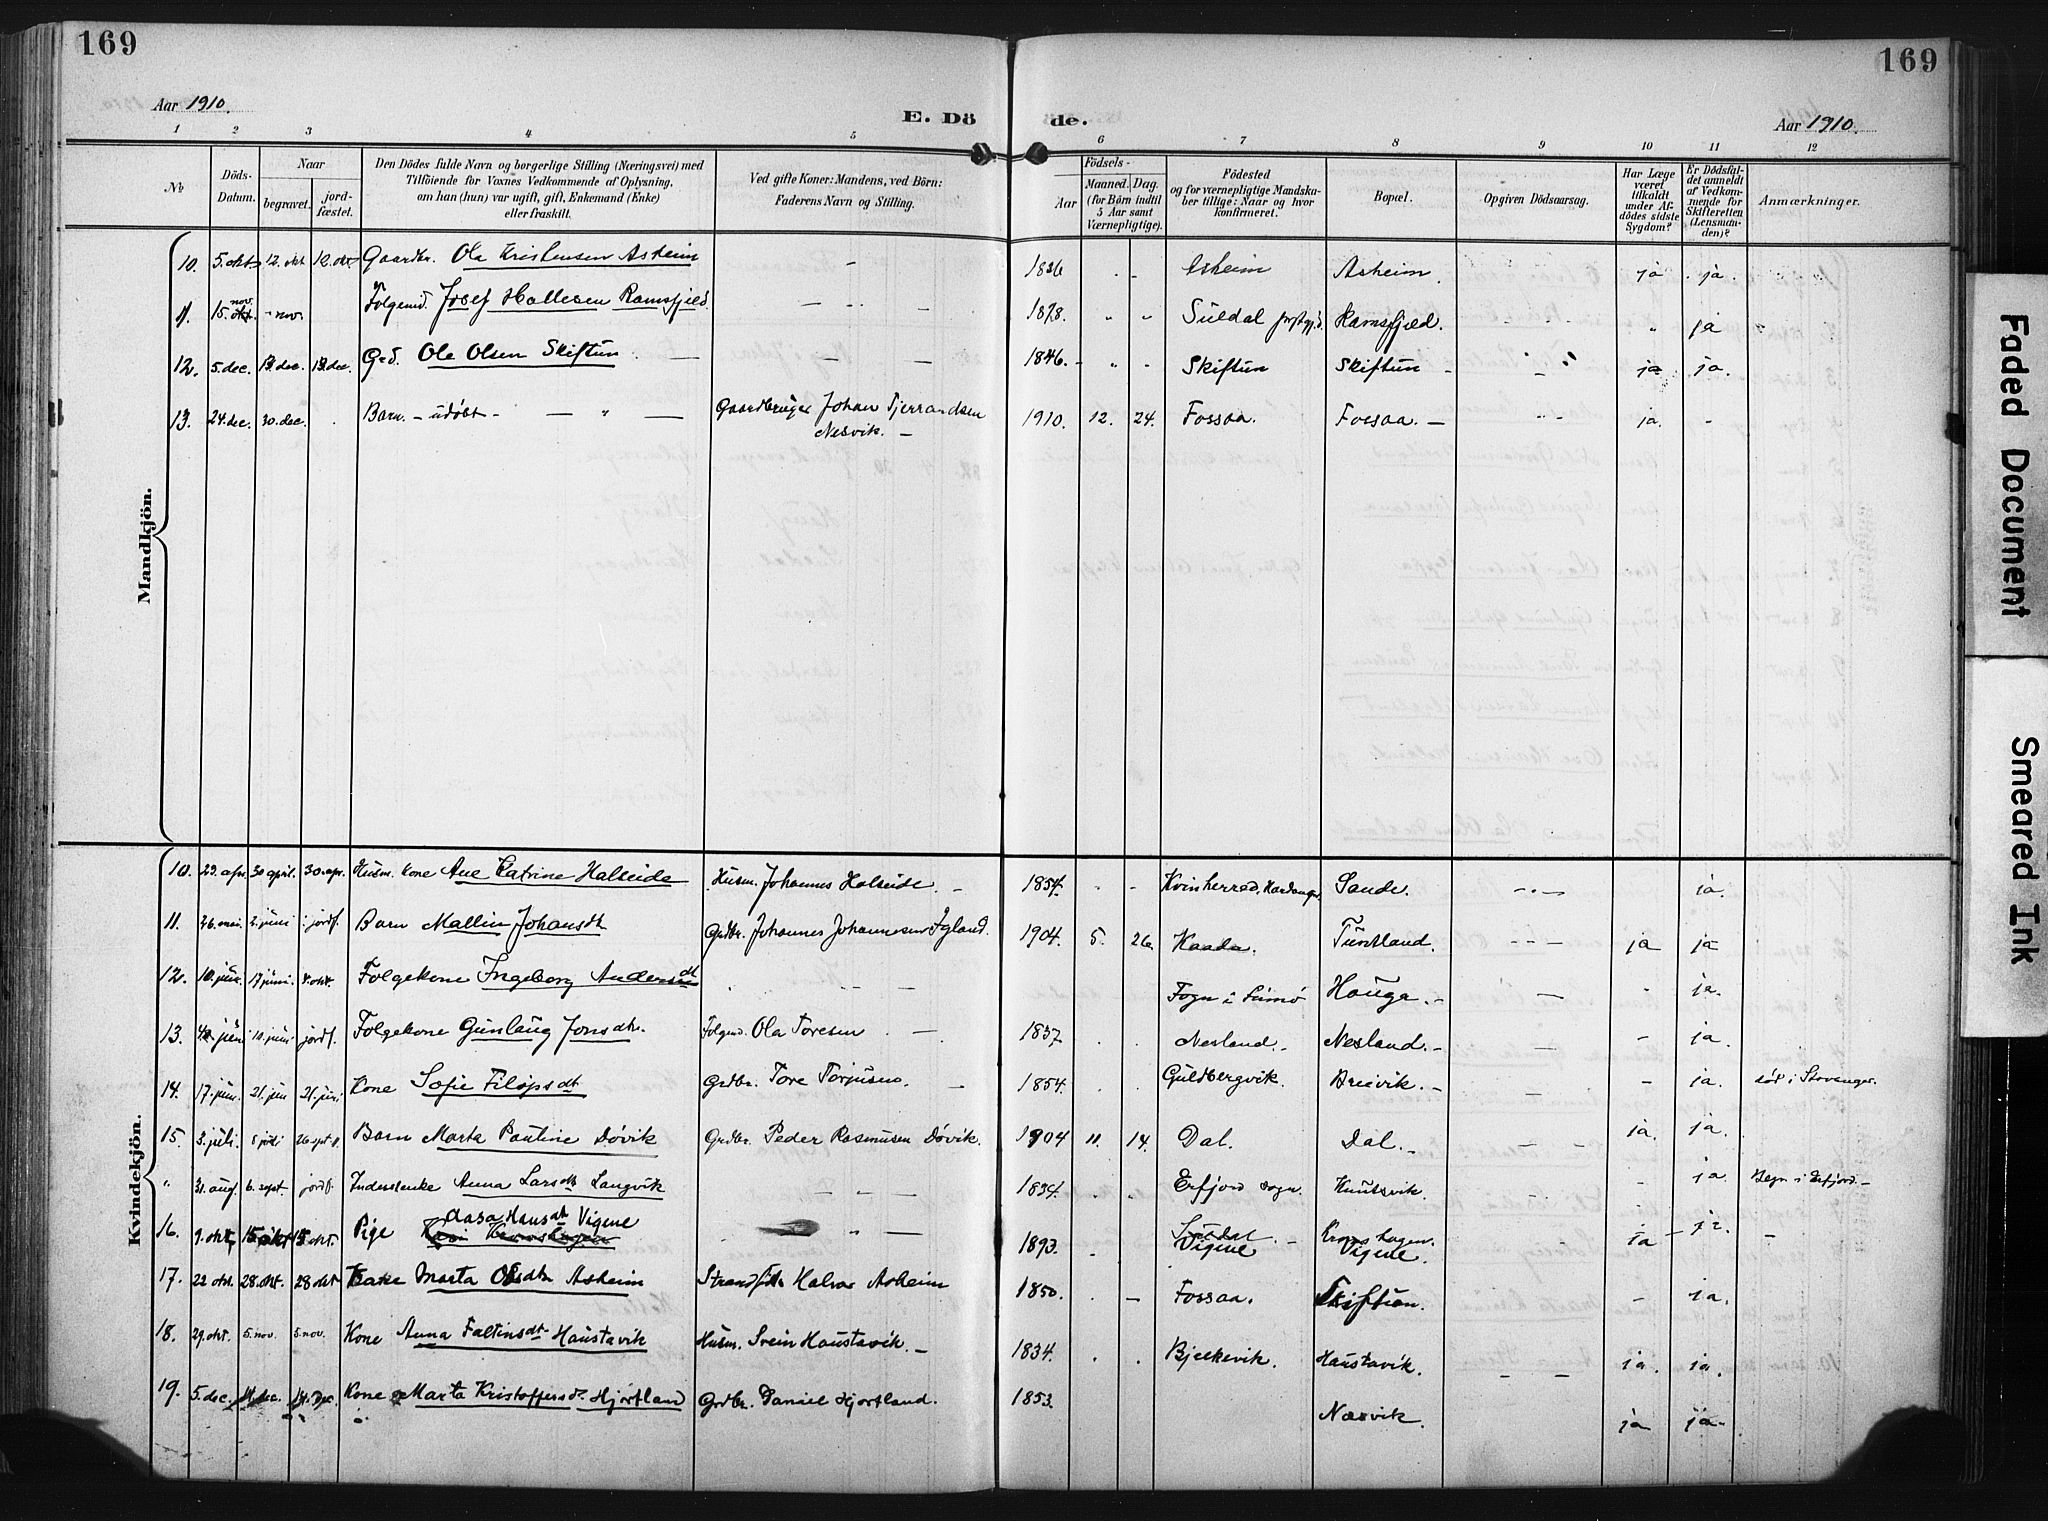 169
169
Aar 1910.
E. Dö
de.
Aar 1910.
1 2 3 4 5 6 7 8 9 10 11 12
No
Döds-Datum.
Naar
begravet.
jord-fæstet.
Den Dödes fulde Navn og borgerlige Stilling (Næringsvei) med
Tilföiende for Voxnes Vedkommende af Oplysning,
om han (hun) var ugift, gift, Enkemand (Enke)
eller fraskilt.
Ved gifte Koner: Mandens, ved Börn:
Faderens Navn og Stilling.
Födsels-
Aar
Maaned. Dag.
(for Börn indtil
5 Aar samt
Værnepligtige).
Födested
og for værnepligtige Mandska-
ber tillige: Naar og hvor
konfirmeret.
Bopæl.
Opgiven Dödsaarsag.
Har Læge
været
tilkaldt
under Af-
dödes sidste
Sygdom?
Er Dödsfal-
det anmeldt
af Vedkom-
mende for
Skifteretten
(Lensman-
den)?
Anmærkninger.
Mandkjön.
10. 5. okt. 12. okt 12. okt Gaardbr. Ola Kristensen Asheim - 1836 Asheim Asheim. ja ja.
11. 15. nov. - nov. Folgemd. Josef Hallesen Ramsfjeld. 1878. Suldal Ramsfjeld. " ja
12. 5. dec. 13. dec. 13. dec. Grd. Ole Olsen Skiftun 1846. Skiftun Skiftun ja ja.
13. 24. dec. 30. dec. Barn - udøbt - Gaardbruger Johan Tjerrandsen 1910. 12. 24. Fossaa. Fossaa. - ja. -
Nesvik. -
Kvindekjön.
10. 23. apr. 30 april. 30. apr. Husm. kone Ane Katrine Halseide Husm. Johannes Halseide. 1854. Kvinherred, Hardanger Sande. ja.
11. 26. mai. 2. juni jordf. Barn Mallin Johansdt Grdbr. Johannes Johannesen 1904. 5. 26. Kaada. Tuntland. ja ja
12. 10. juni. 17 juni. 4. okt. Folgekone Ingeborg Andersdt Fogn i Houga. - ja.
13. juni 10. juni jordf. Folgekone Gunlaug Jonsdtr. Folgemd. Ola Toresen 1837. Nesland. - Nesland. - - ja.
14. 17. jun. 21. jun 21. juni Kone Sofie Filipsdt Grdbr. Tore Torjusen. 1854. Guldbergvik. Breivik. - - ja. død i Stavanger.
15. 3. juli. juli 26. sept. Barn Marta Pauline Døvik Grdbr. Peder Rasmussen Døvik. 1904 11. 14. Dal. Dal. - ja. ja.
" 31. aug. 6. sept. jordf. Inderstenke Anna Larsdt Langvik 1834. Erfjord sogn. Knutsvik. - ja Begr. i Erfjord. -
Aasa Hansdt Vigene
16. 9. okt. 15. okt 15. okt. Pige 1893. Suldal Kronshagen. ja - ja.
Vigene Vigene.
17. 22 okt. 28. okt. 28 okt Kone Marta Olsdtr Asheim Halvor Asheim 1850. Fossaa. Skiftun. - ja.
18. 29. okt. 5. nov. 5. nov. Kone Anna Faltinsdt. Haustavik Husm. Svein Haustavik. - 1834. Bjelkevik. Haustavik. ja. ja.
19. 5. dec. 14. dec. 14. Dec. Kone Marta Kristoffersdt. Hjortland Grdbr. Daniel Hjortland. 1853. Næsvik. ja ja-
Faded Document
Smeared Ink